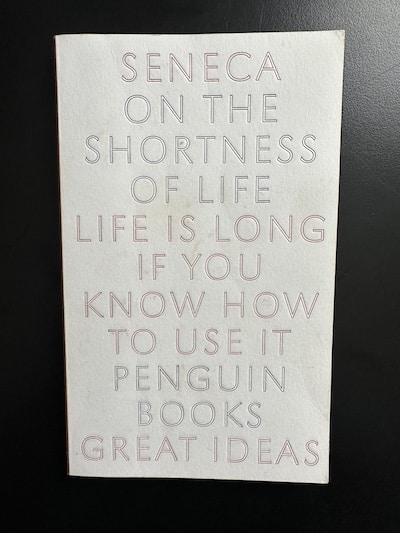 SENECA
ON THE
SHORTNESS
OF LIFE
LIFE IS LONG
IF YOU
KNOW HOW
TO USE IT
PENGUIN
BOOKS
GREAT IDEAS